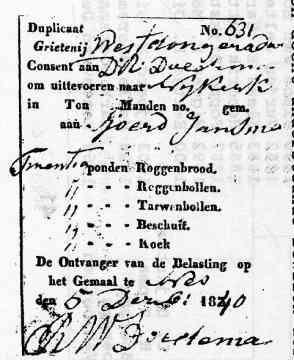 Duplicaat No. 631
Grietenij Westdongeradeel
Consent aan D. R.
om uittevoeren naar Nijkerk
in Ton Manden no. gem.
aan Sjoerd Jansma
Twentig ponden Roggenbrood.
" - - - Roggenbollen.
" - - - Tarwenbollen.
" - - - Beschuit.
" - - - Koek
De Ontvanger van de Belasting op
het Gemaal te Nes
den 5 1840